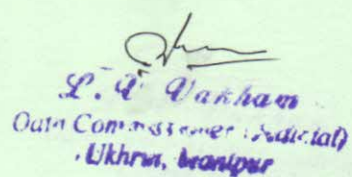 L. A Vakham
Oath Commissioner (Judicial)
Ukhrul, Manipur